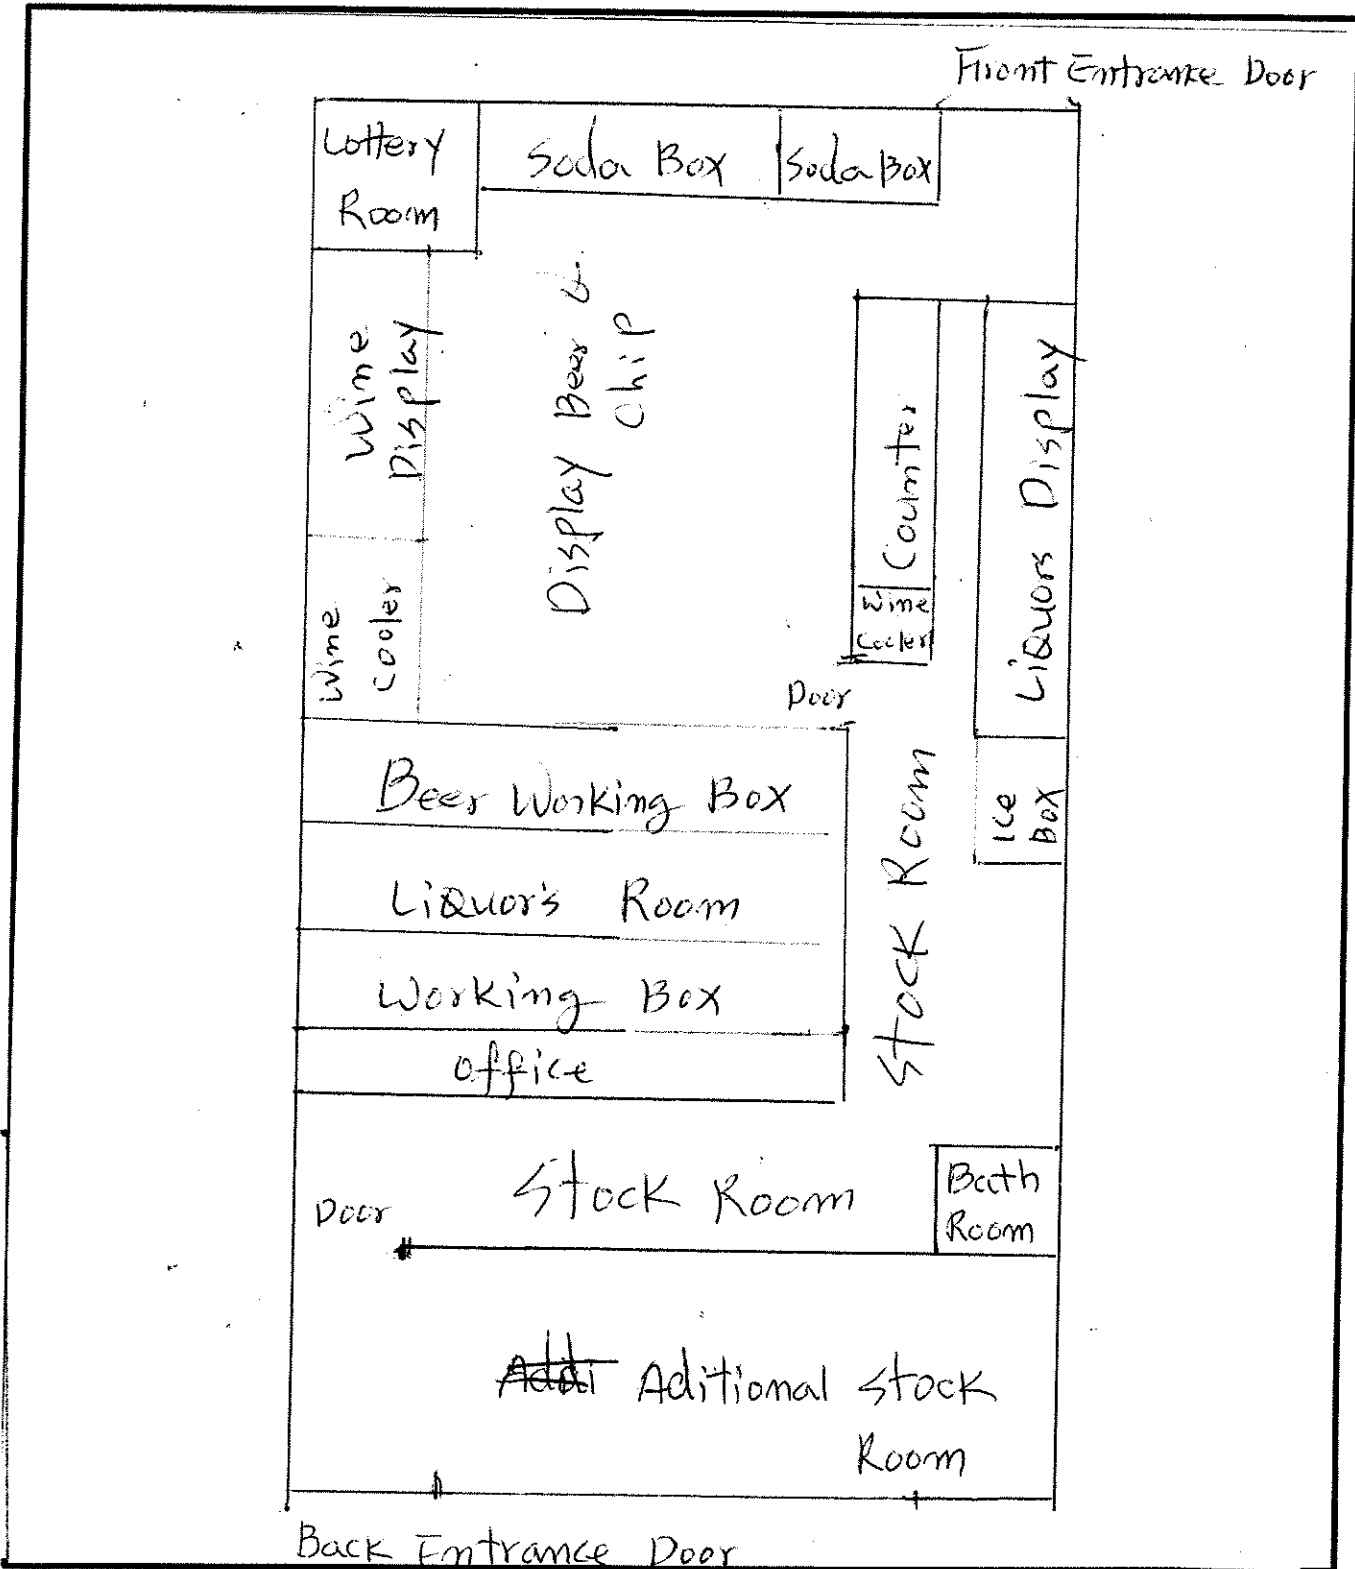 Front Entrance Door
Lottery
Room
Soda Box
Soda Box
Wine
Display
Display Beer &
Chip
Counter
Liquors Display
Wine
Cooler
Wine
Cooler
Door
Beer Working Box
Stock Room
Ice
Box
Liquor's Room
Working Box
office
Stock Room
Bath
Room
Door
Addi Aditional Stock
Room
Back Entrance Door